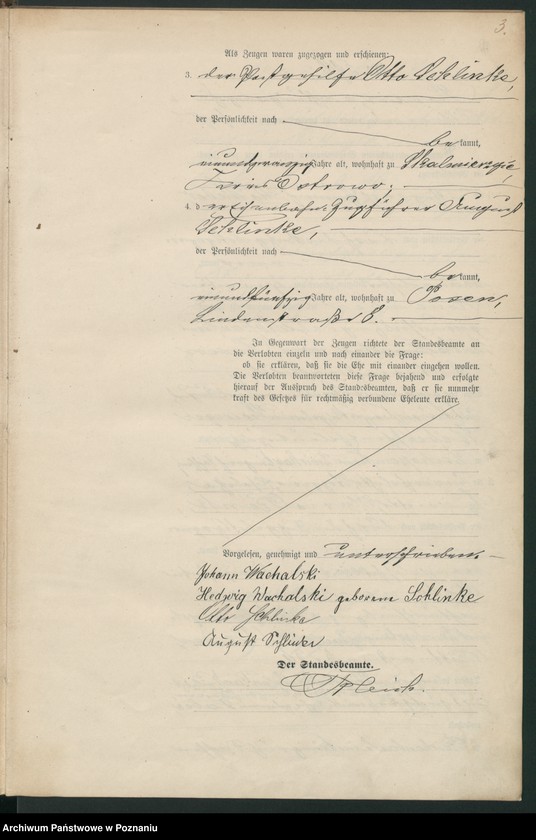 3.
Als Zeugen waren zugezogen und erschienen:
3. der Postgehilfe Otto Schlinke,
der Persönlichkeit nach
bekannt,
Jahre alt, wohnhaft zu Skalmierzyce,
Kreis Ostrowo;
4. der Eisenbahn-Zugführer August
Schlinke,
der Persönlichkeit nach
bekannt,
Jahre alt, wohnhaft zu Posen,
Lindenstraße 8.
In Gegenwart der Zeugen richtete der Standesbeamte an
die Verlobten einzeln und nach einander die Frage:
ob sie erklären, daß sie die Ehe mit einander eingehen wollen.
Die Verlobten beantworteten diese Frage bejahend und erfolgte
hierauf der Ausspruch des Standesbeamten, daß er sie nunmehr
kraft des Gesetzes für rechtmäßig verbundene Eheleute erkläre.
Vorgelesen, genehmigt und unterschrieben.
Johann Wachalski
Hedwig Wachalski geborene Schlinke
Otto Schlinke
August Schlinke
Der Standesbeamte.
Archiwum Państwowe w Poznaniu